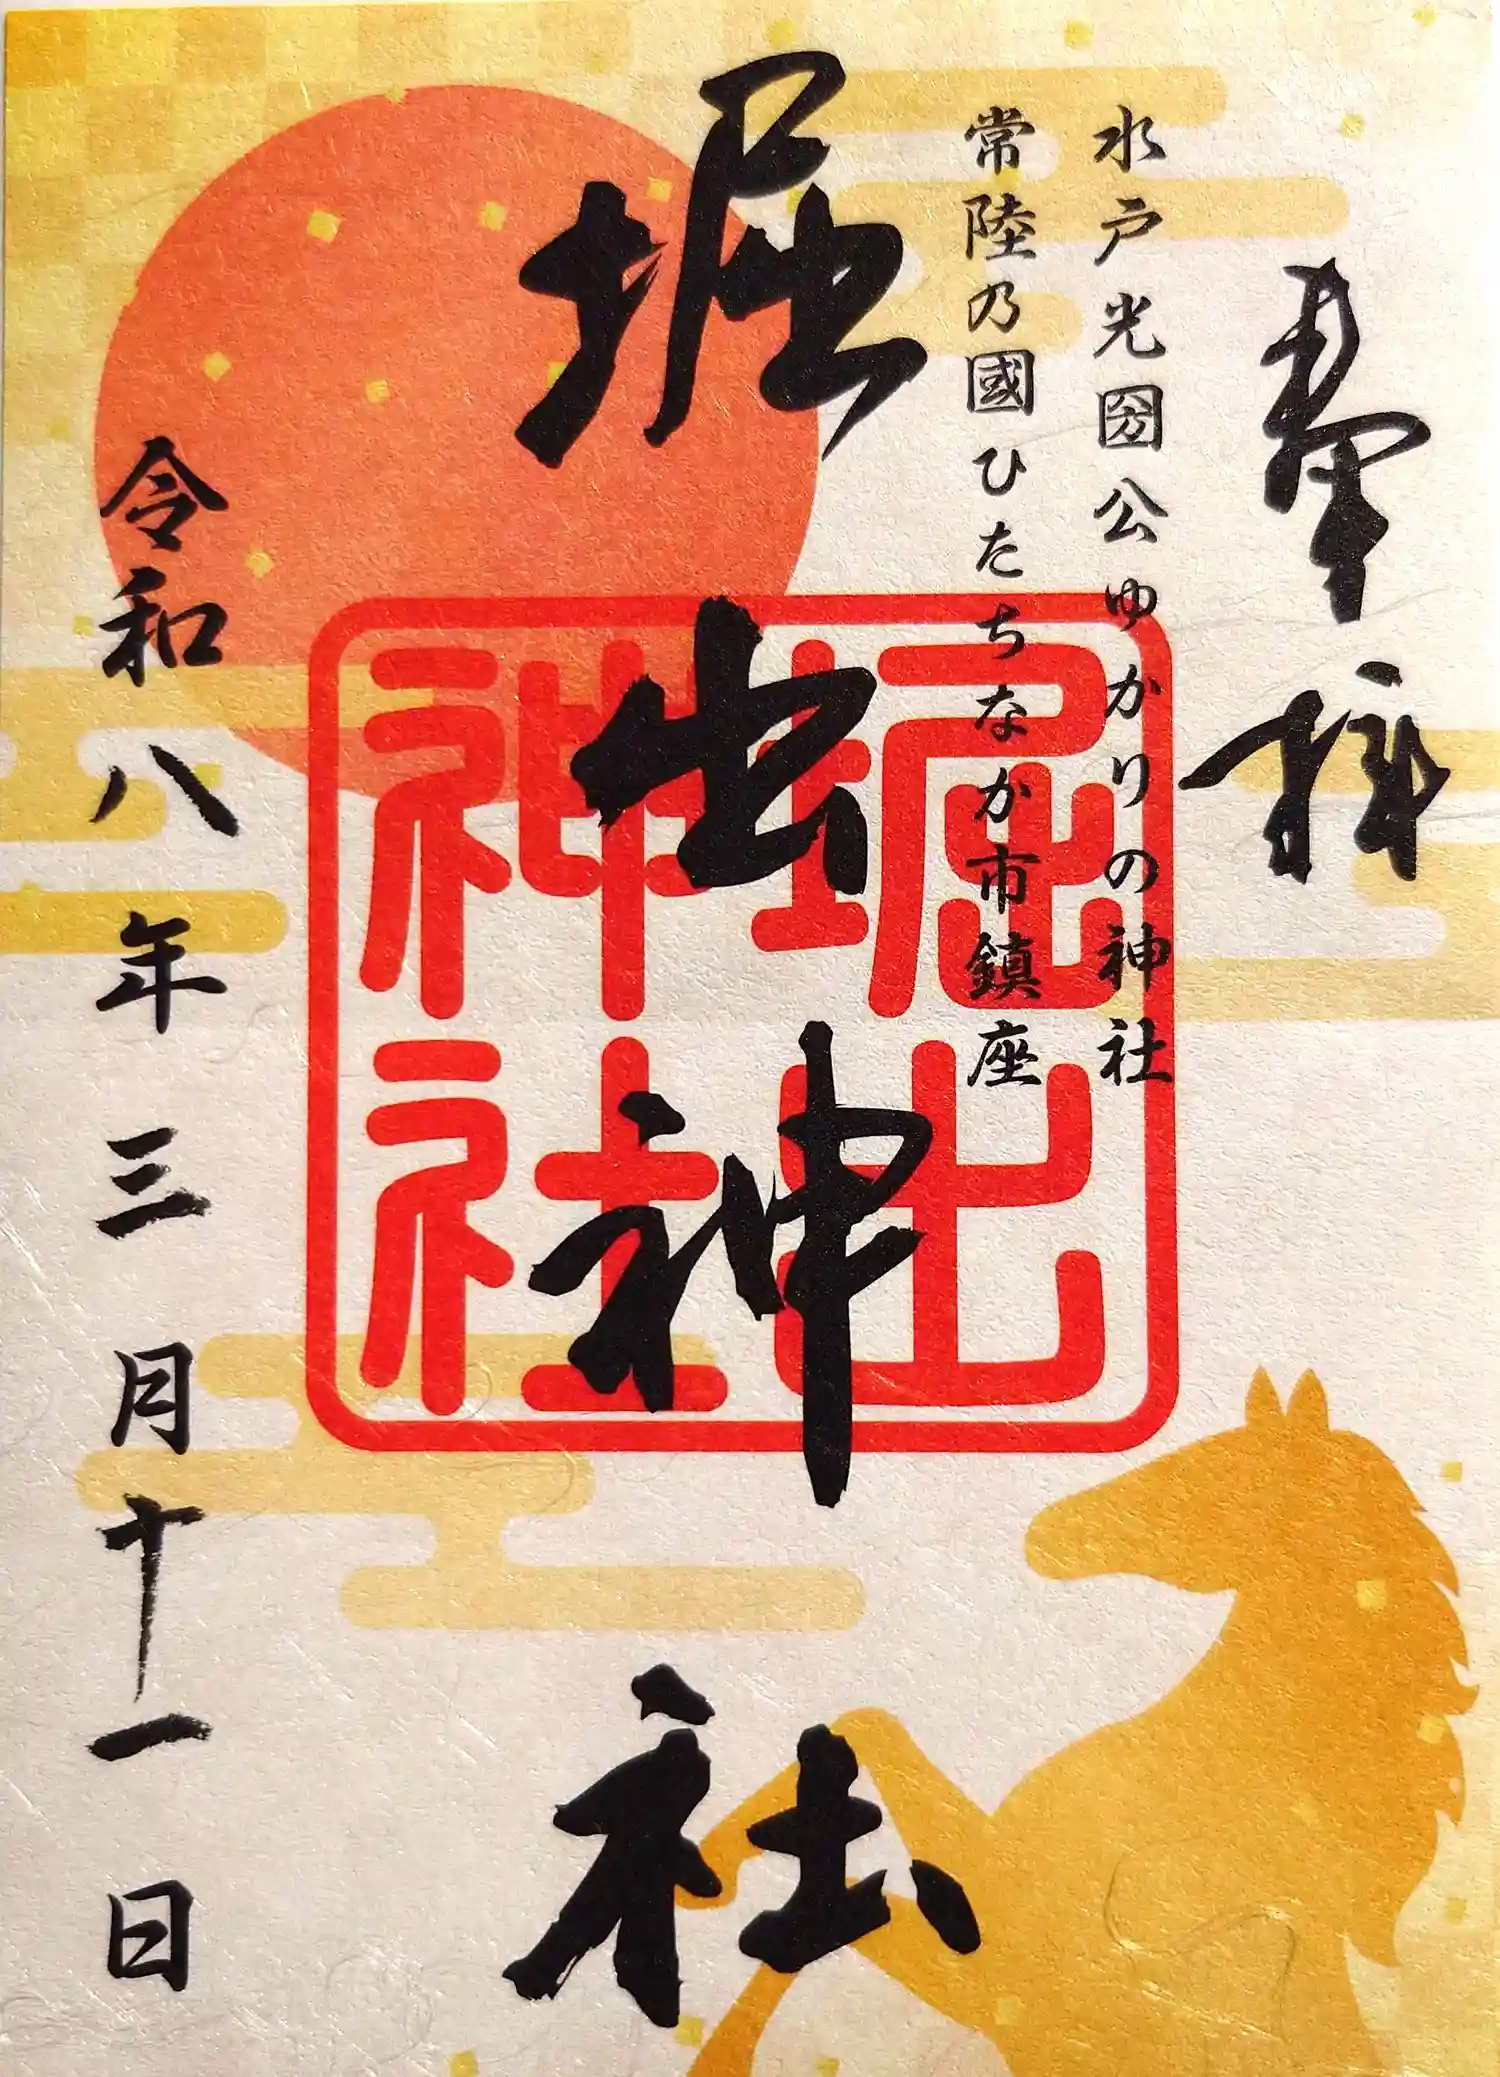 奉拝
水戸光圀公ゆかりの神社
常陸乃國ひたちなか市鎮座
堀出神社
堀出
神社
令和八年三月十一日